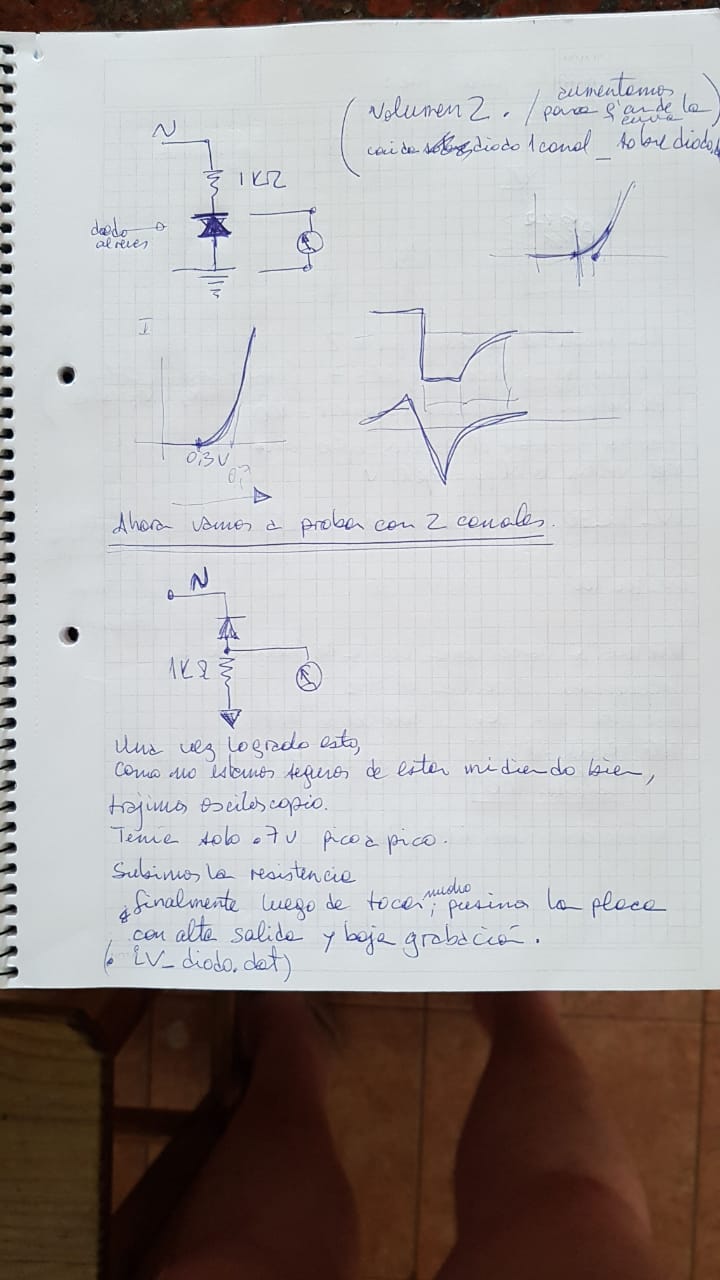 (Volumen 2. / aumentamos
para q' ande la
curva)
caida diodo 1 canal _ sobre diodo.
N
1KΩ
diodo
al reves
I
0,3V
0,7
Ahora vamos a probar con 2 canales.
N
1KΩ
Una vez logrado esto,
como no estamos seguros de estar midiendo bien,
trajimos osciloscopio.
Tenia solo .7v pico a pico.
Subimos la resistencia
y finalmente luego de tocar mucho, pusimos la placa
con alta salida y baja grabación.
(. IV_diodo.dat)